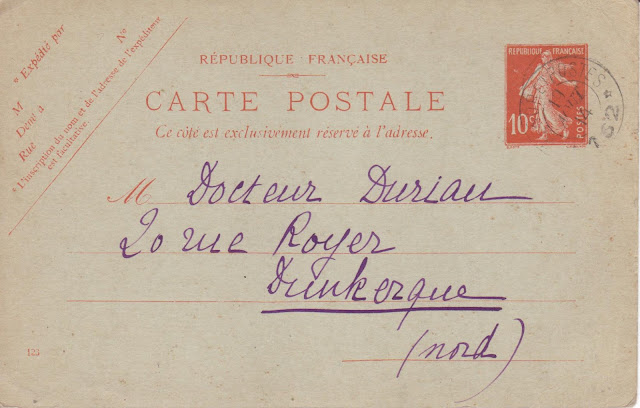 * Expédié par
M N°
Déme a
Rue
* L'inscription du nom et de l'adresse de l'expéditeur
est facultative.
RÉPUBLIQUE FRANÇAISE
CARTE POSTALE
Ce côté est exclusivement réservé à l'adresse.
REPUBLIQUE FRANÇAISE
10c
POSTES
M Docteur Duriau
20 rue Royer
Dunkerque
(nord)
123